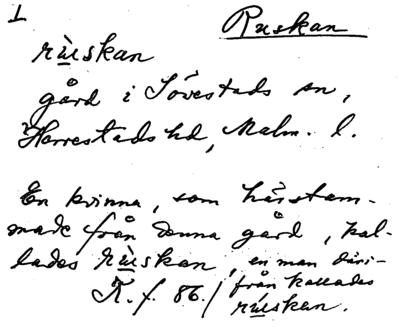 1
Ruskan
rùskan
gård i Sövestads sn,
Herrestads hd, Malm. l.
En kvinna, som härstam-
made från denna gård, kal-
lades rùskan, en man däri-
från kallades
rúskan.
K. f. 86./